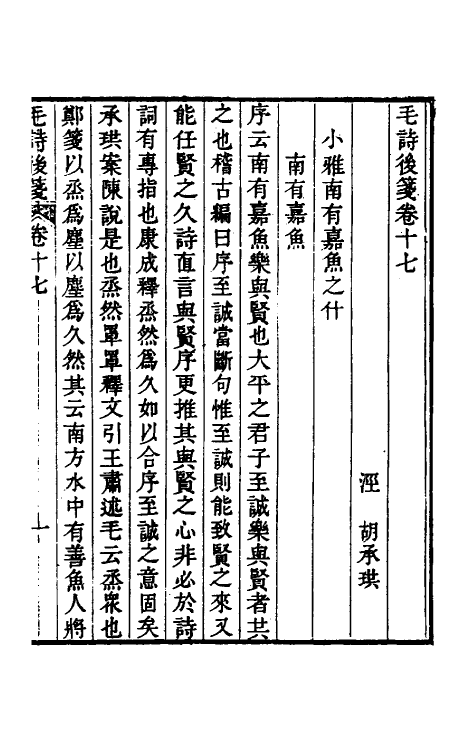 毛詩後箋卷十七
涇　胡承珙
小雅南有嘉魚之什
南有嘉魚
序云南有嘉魚樂與賢也大平之君子至誠樂與賢者共
之也稽古編曰序至誠當斷句惟至誠則能致賢之來又
能任賢之久詩直言與賢序更推其與賢之心非必於詩
詞有專指也康成釋烝然爲久如以合序至誠之意固矣
承珙案陳說是也烝然罩罩釋文引王肅述毛云烝眾也
鄭箋以烝爲塵以塵爲久然其云南方水中有善魚人將
毛詩後箋 卷十七 一